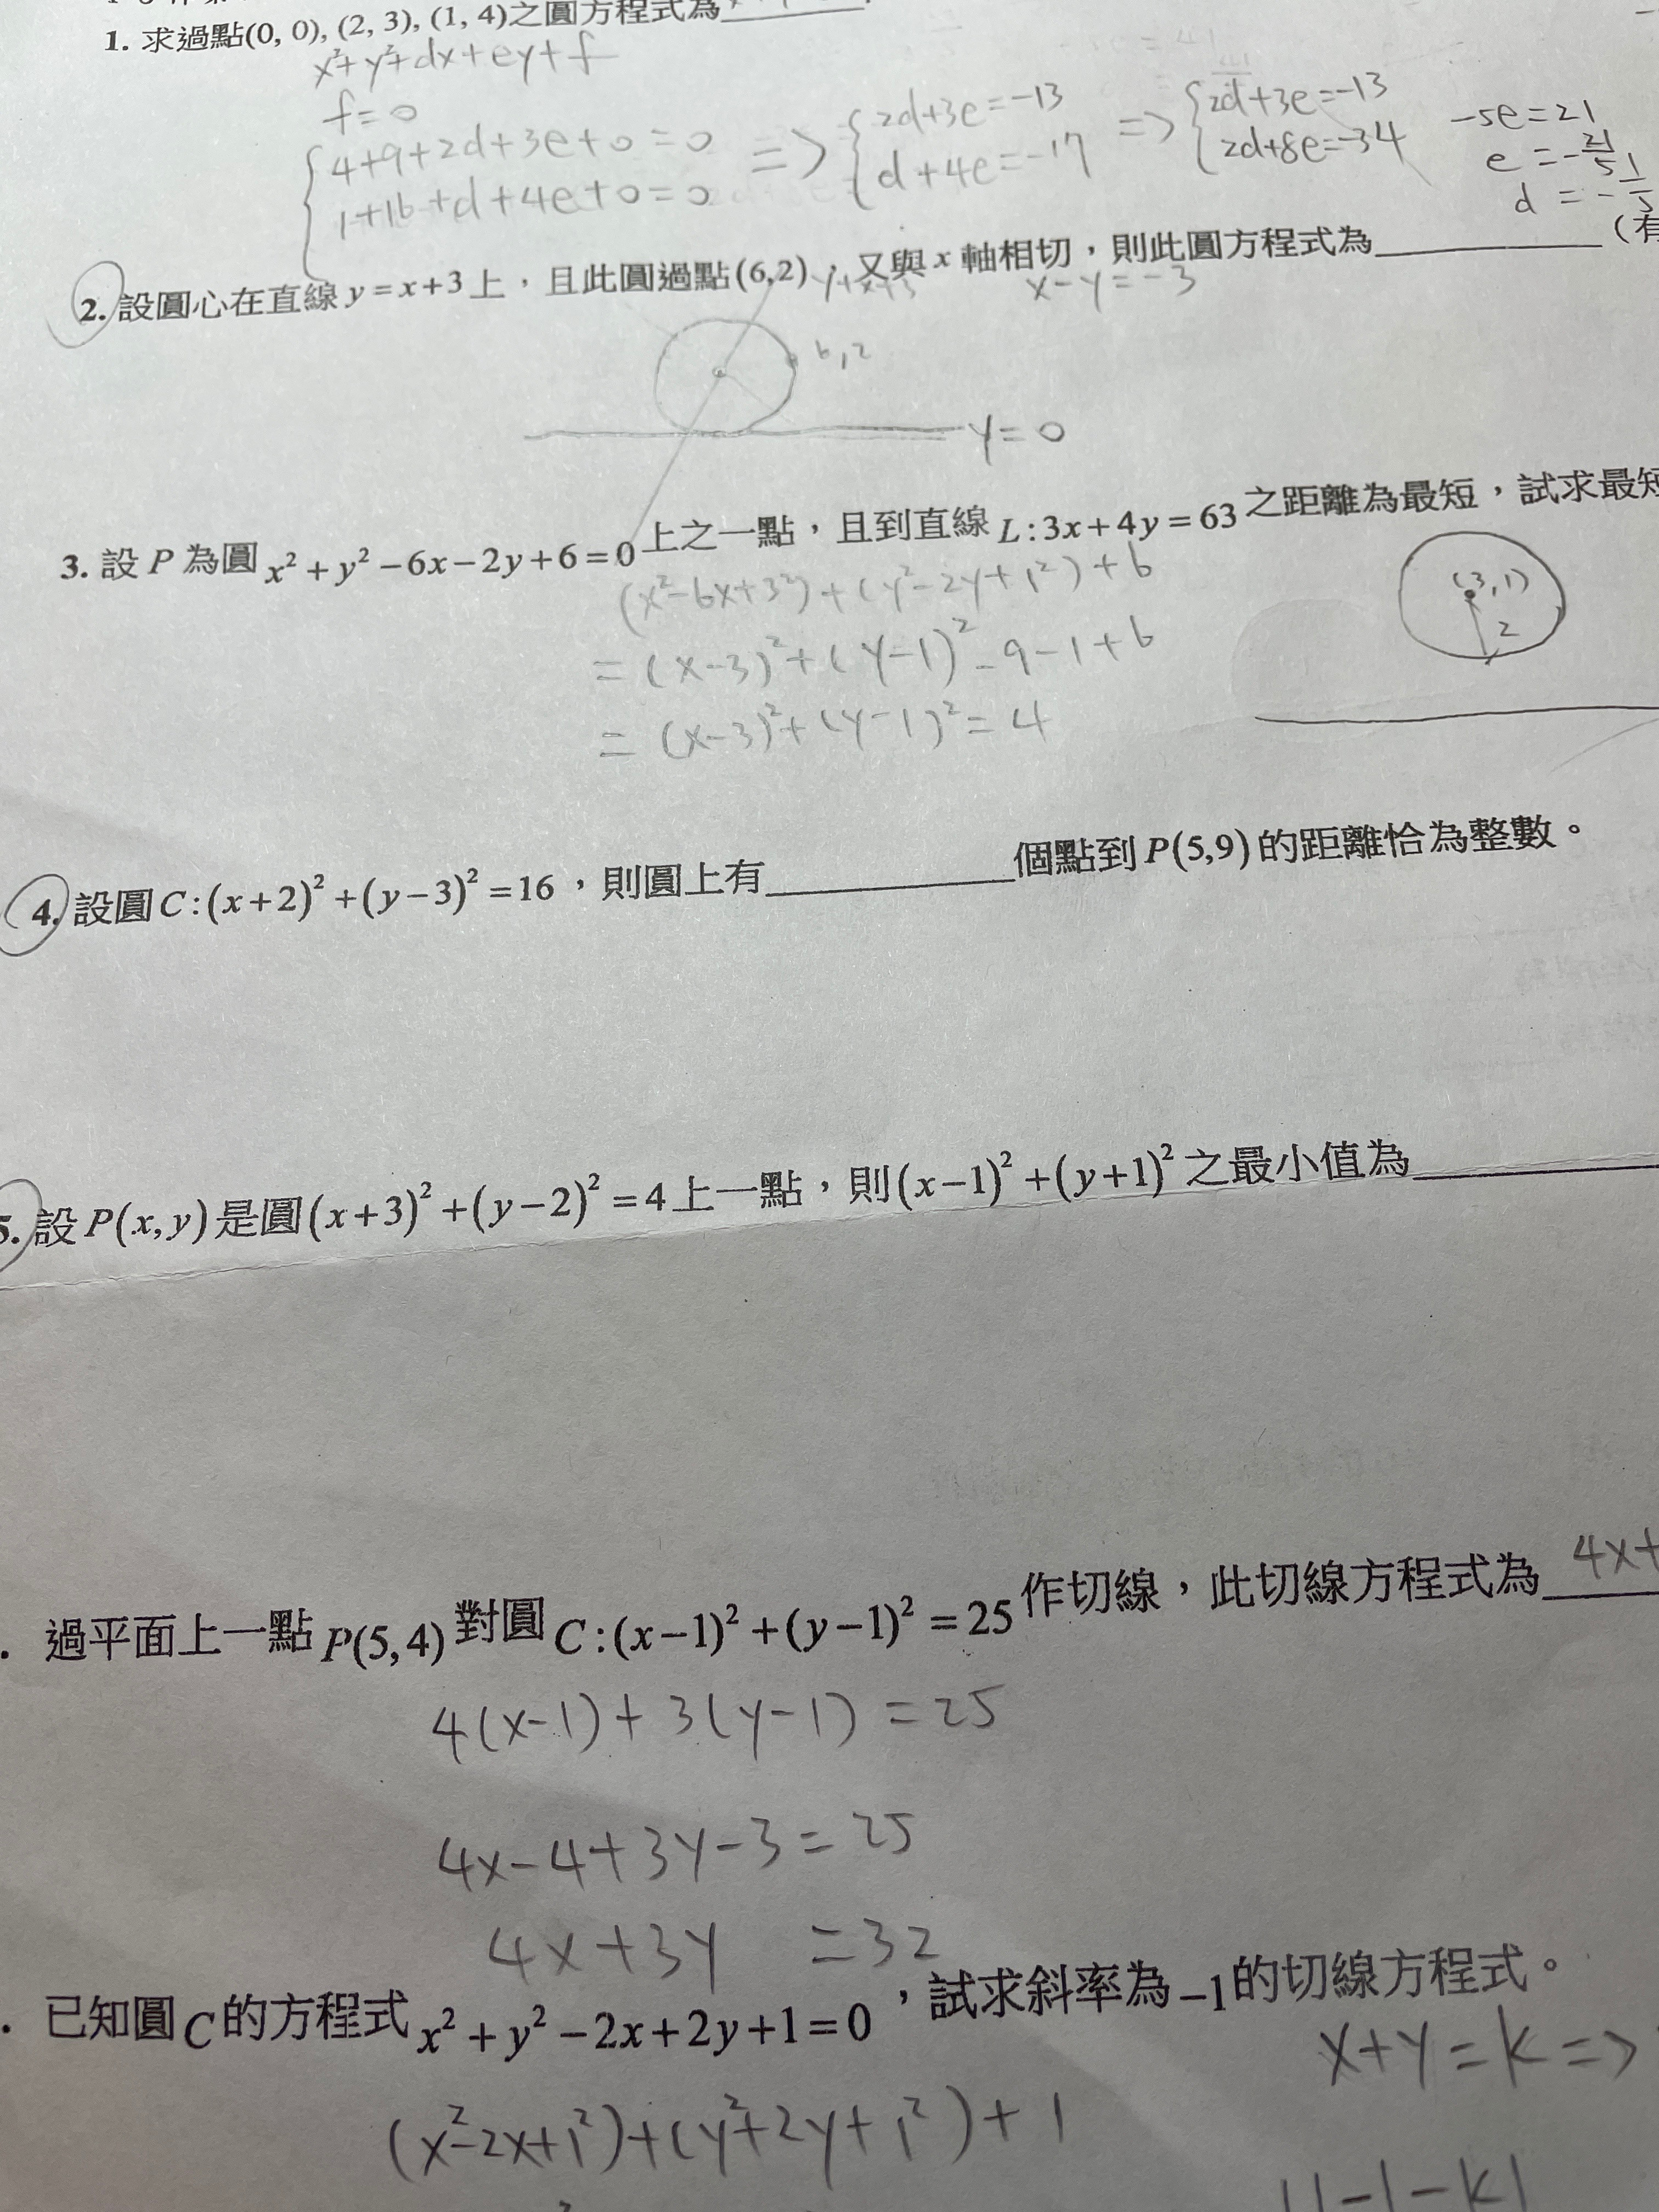 1. 求過點(0, 0), (2, 3), (1, 4)之圓方程式為
x²+y²+dx+ey+f
f=0
4+9+2d+3e+0=0
1+16+d+4e+0=0
=> 2d+3e=-13
d+4e=-17
=> 2d+3e=-13
2d+8e=-34
-5e=21
e=-21/5
d=-1/5
2. 設圓心在直線 y=x+3上，且此圓過點(6,2)，又與 x 軸相切，則此圓方程式為 (有
x-y=-3
6,2
y=0
3. 設 P 為圓 x²+y²-6x-2y+6=0 上之一點，且到直線 L:3x+4y=63 之距離為最短，試求最短
(x²-6x+3²)+(y²-2y+1²)+6
=(x-3)²+(y-1)²-9-1+6
=(x-3)²+(y-1)²=4
(3,1)
2
4. 設圓C:(x+2)²+(y-3)²=16，則圓上有 個點到P(5,9)的距離恰為整數。
5. 設P(x,y)是圓(x+3)²+(y-2)²=4上一點，則(x-1)²+(y+1)²之最小值為
. 過平面上一點P(5,4)對圓C:(x-1)²+(y-1)²=25作切線，此切線方程式為 4x+
4(x-1)+3(y-1)=25
4x-4+3y-3=25
4x+3y =32
. 已知圓C的方程式x²+y²-2x+2y+1=0，試求斜率為-1的切線方程式。
x+y=k=>
(x²-2x+1²)+(y²+2y+1²)+1
|1-1-k|